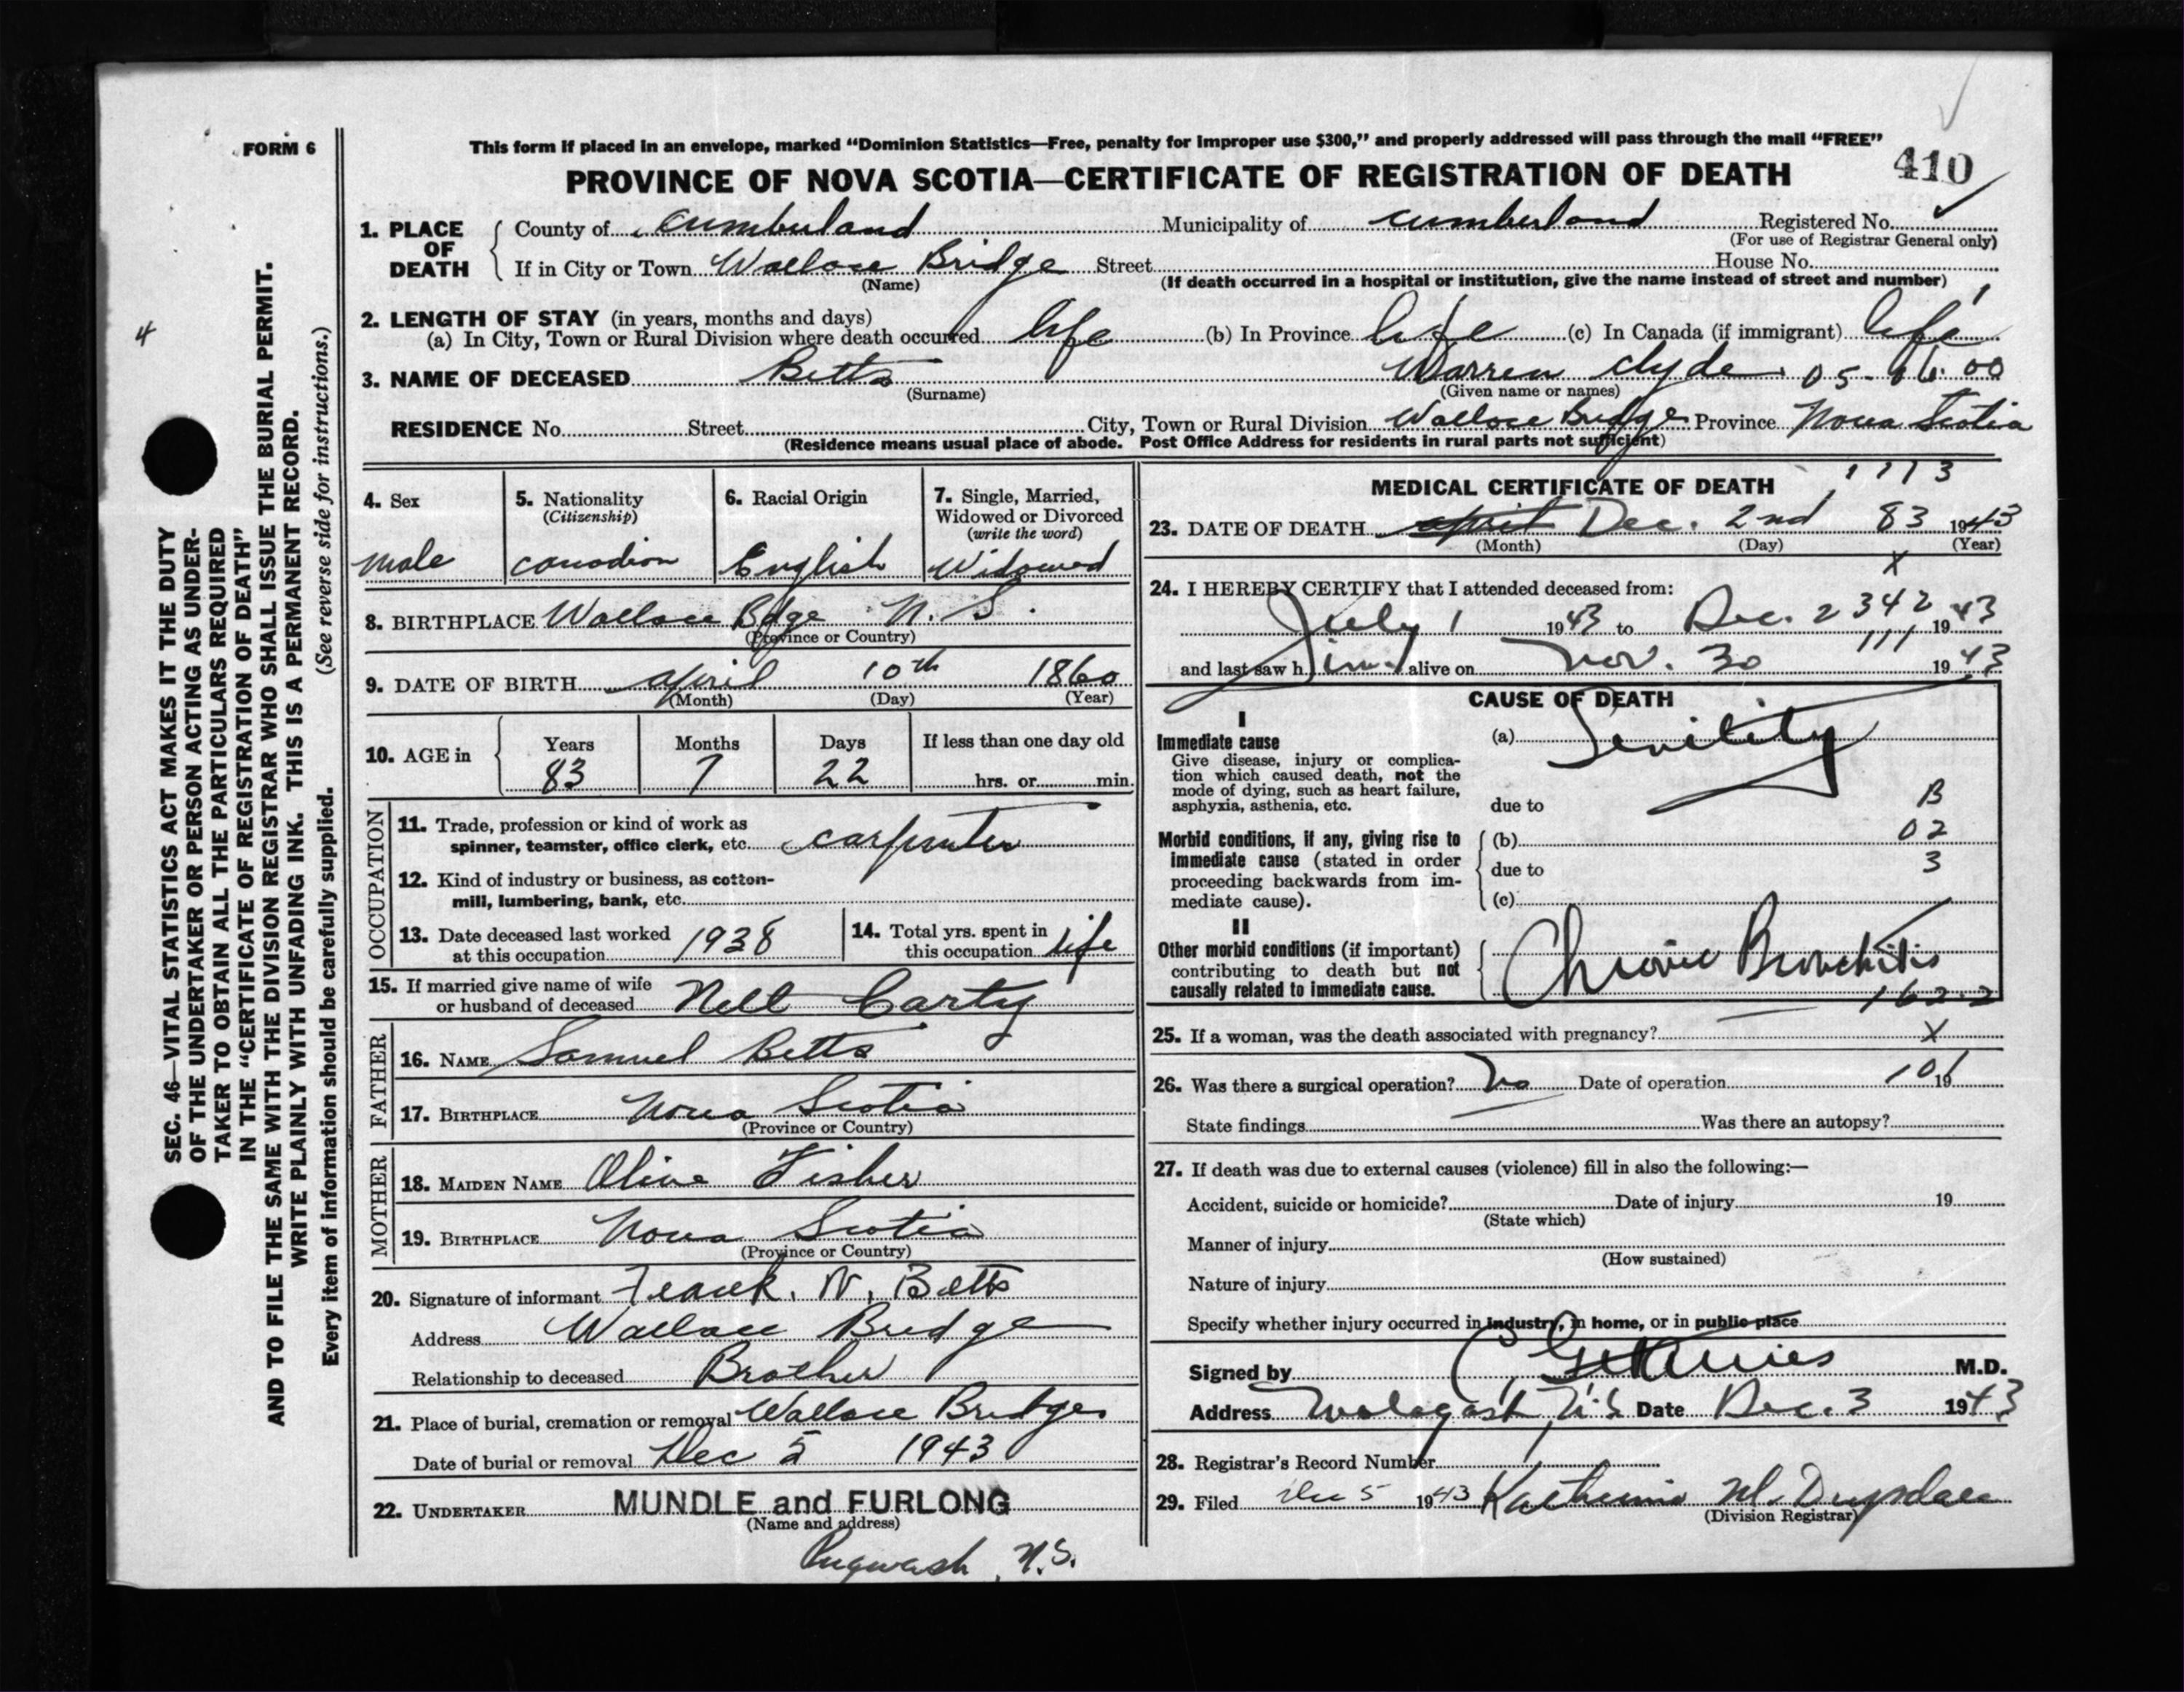 FORM 6
This form if placed in an envelope, marked “Dominion Statistics—Free, penalty for improper use $300,” and properly addressed will pass through the mail “FREE”
PROVINCE OF NOVA SCOTIA—CERTIFICATE OF REGISTRATION OF DEATH
410
1. PLACE OF DEATH
County of Cumberland Municipality of Cumberland Registered No.
(For use of Registrar General only)
If in City or Town Wallace Bridge Street House No.
(Name) (If death occurred in a hospital or institution, give the name instead of street and number)
2. LENGTH OF STAY (in years, months and days)
(a) In City, Town or Rural Division where death occurred life (b) In Province life (c) In Canada (if immigrant) life
3. NAME OF DECEASED Betts Warren Clyde
(Surname) (Given name or names)
RESIDENCE No. Street City, Town or Rural Division Wallace Bridge Province Nova Scotia
(Residence means usual place of abode. Post Office Address for residents in rural parts not sufficient)
4. Sex
male
5. Nationality
(Citizenship)
Canadian
6. Racial Origin
English
7. Single, Married,
Widowed or Divorced
(write the word)
Widowed
8. BIRTHPLACE Wallace Bdge N. S.
(Province or Country)
9. DATE OF BIRTH April 10th 1860
(Month) (Day) (Year)
10. AGE in Years Months Days If less than one day old
83 7 22 hrs. or min.
OCCUPATION
11. Trade, profession or kind of work as
spinner, teamster, office clerk, etc. carpenter
12. Kind of industry or business, as cotton-
mill, lumbering, bank, etc.
13. Date deceased last worked
at this occupation 1938
14. Total yrs. spent in
this occupation life
15. If married give name of wife
or husband of deceased Nell Carty
FATHER
16. NAME Samuel Betts
17. BIRTHPLACE Nova Scotia
(Province or Country)
MOTHER
18. MAIDEN NAME Olive Fisher
19. BIRTHPLACE Nova Scotia
(Province or Country)
20. Signature of informant Frank. N. Betts
Address Wallace Bridge
Relationship to deceased Brother
21. Place of burial, cremation or removal Wallace Bridge
Date of burial or removal Dec 5 1943
22. UNDERTAKER MUNDLE and FURLONG
(Name and address)
Pugwash, N.S.
MEDICAL CERTIFICATE OF DEATH
1113
23. DATE OF DEATH April Dec. 2nd 83 1943
(Month) (Day) (Year)
X
24. I HEREBY CERTIFY that I attended deceased from:
July 1 1943 to Dec. 2 342 1943
111
and last saw him alive on Nov. 30 1943
CAUSE OF DEATH
I
Immediate cause
Give disease, injury or complica-
tion which caused death, not the
mode of dying, such as heart failure,
asphyxia, asthenia, etc.
(a) Senility
due to
B
Morbid conditions, if any, giving rise to
immediate cause (stated in order
proceeding backwards from im-
mediate cause).
(b) 02
due to 3
(c)
II
Other morbid conditions (if important)
contributing to death but not
causally related to immediate cause.
Chronic Bronchitis
162.2
25. If a woman, was the death associated with pregnancy? X
26. Was there a surgical operation? No Date of operation 101 19
State findings Was there an autopsy?
27. If death was due to external causes (violence) fill in also the following:—
Accident, suicide or homicide? Date of injury 19
(State which)
Manner of injury
(How sustained)
Nature of injury
Specify whether injury occurred in industry, in home, or in public place
Signed by M.D.
Address N.S. Date Dec. 3 1943
28. Registrar's Record Number
29. Filed Dec 5 1943 Katherine M. Drysdale
(Division Registrar)
4
SEC. 46—VITAL STATISTICS ACT MAKES IT THE DUTY
OF THE UNDERTAKER OR PERSON ACTING AS UNDER-
TAKER TO OBTAIN ALL THE PARTICULARS REQUIRED
IN THE “CERTIFICATE OF REGISTRATION OF DEATH”
AND TO FILE THE SAME WITH THE DIVISION REGISTRAR WHO SHALL ISSUE THE BURIAL PERMIT.
WRITE PLAINLY WITH UNFADING INK. THIS IS A PERMANENT RECORD.
Every item of information should be carefully supplied. (See reverse side for instructions.)